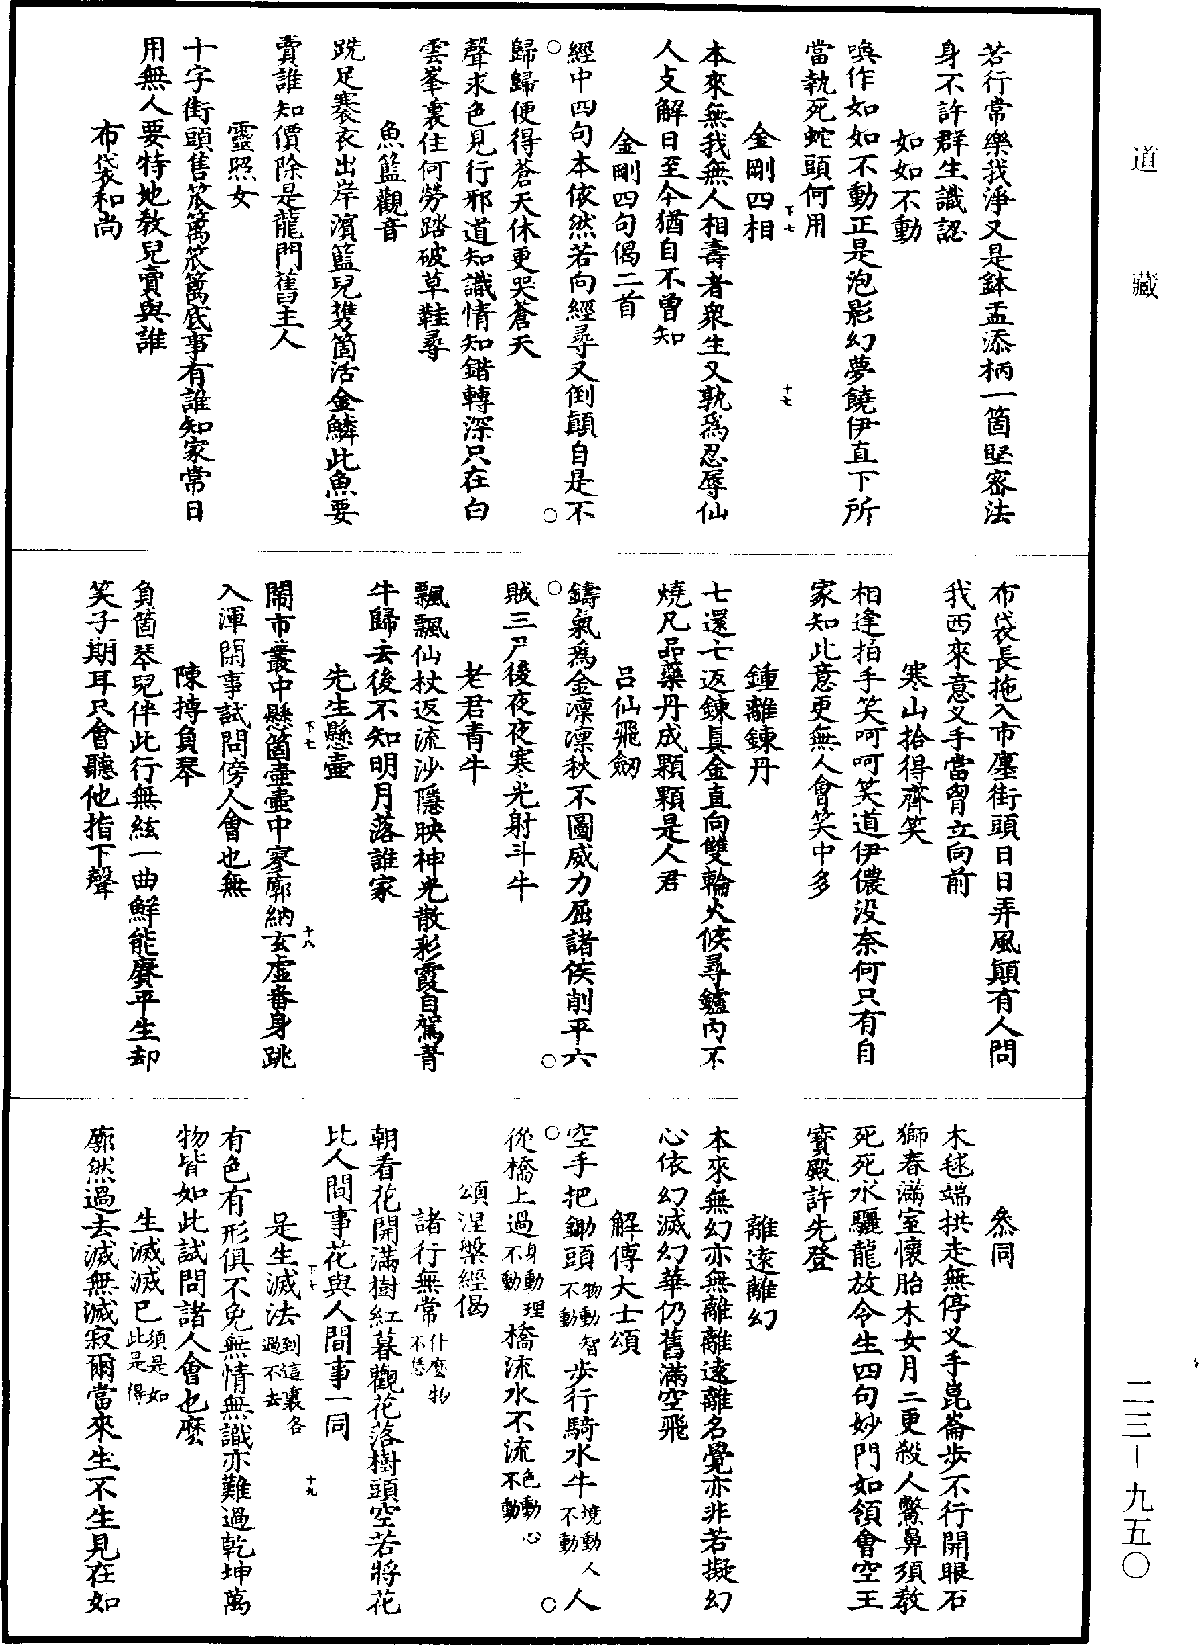 道藏
若行常樂我淨又是鉢盂添柄一箇堅密法
身不許群生識認
如如不動
喚作如如不動正是泡影幻夢饒伊直下所
當執死蛇頭何用
下七
十七
金剛四相
本來無我無人相壽者衆生又孰爲忍辱仙
人支解日至今猶自不曾知
金剛四句偈二首
經中四句本依然若向經尋又倒顛自是不
歸歸便得蒼天休更哭蒼天
聲求色見行邪道知識情知錯轉深只在白
雲峯裏住何勞踏破草鞋尋
魚籃觀音
跣足褰衣出岸濱籃兒㩦箇活金鱗此魚要
賣誰知價除是龍門舊主人
靈照女
十字街頭售笊篱笊篱底事有誰知家常日
用無人要特地教兒賣與誰
布袋和尚
布袋長拖入市廛街頭日日弄風顛有人問
我西來意叉手當胷立向前
寒山拾得齊笑
相逢拍手笑呵呵笑道伊儂没奈何只有自
家知此意更無人會笑中多
鍾離鍊丹
七還七返鍊真金直向雙輪火候尋鑪內不
燒凡品藥丹成顆顆是人君
呂仙飛劒
鑄氣爲金凛凛秋不圖威力屈諸侯削平六
賊三尸後夜夜寒光射斗牛
老君青牛
飄飄仙杖返流沙隱映神光散彩霞自駕青
牛歸去後不知明月落誰家
先生懸壺
下七
十八
閙市叢中懸箇壺壺中寥廓納玄虛番身跳
入渾閑事試問傍人會也無
陳摶負琴
負箇琴兒伴此行無絃一曲鮮能賡平生却
笑子期耳只會聽他指下聲
叅同
木毬端拱走無停叉手崑崙步不行開眼石
獅春滿室懷胎木女月二更殺人鱉鼻須教
死死水驪龍放令生四句妙門如領會空王
寶殿許先登
離遠離幻
本來無幻亦無離離遠離名覺亦非若擬幻
心依幻滅幻華仍舊滿空飛
解傅大士頌
空手把鋤頭物動智不動步行騎水牛境動人不動人
從橋上過身動理不動橋流水不流色動心不動
頌涅槃經偈
諸行無常什麽物不恁
朝看花開滿樹紅暮觀花落樹頭空若將花
比人間事花與人間事一同
是生滅法到這裏各過不去
下七
十九
有色有形俱不免無情無識亦難過乾坤萬
物皆如此試問諸人會也麽
生滅滅已須是如此是得
廓然過去滅無滅寂爾當來生不生見在如
二三—九五〇